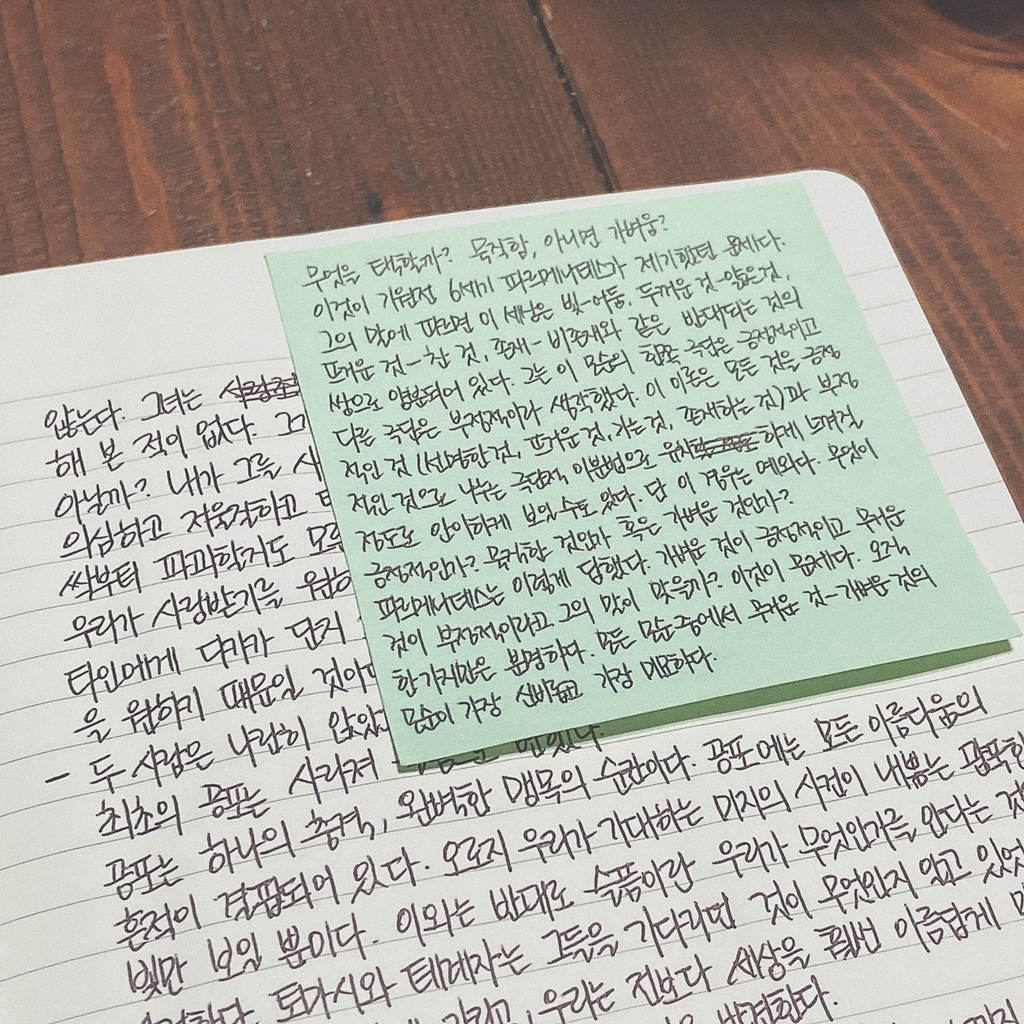 무엇을 택할까? 묵직함, 아니면 가벼움?
이것이 기원전 6세기 파르메니데스가 제기했던 문제다.
그의 말에 따르면 이 세상은 빛-어둠, 두꺼운 것-얇은것,
뜨거운 것-찬 것, 존재-비존재와 같은 반대되는 것의
쌍으로 양분되어 있다. 그는 이 모순의 한쪽 극단은 긍정적이고
다른 극단은 부정적이라 생각했다. 이 이론은 모든 것을 긍정
적인 것 (선명한것, 뜨거운 것, 가는 것, 존재하는 것)과 부정
적인 것으로 나누는 극단적 이분법으로 유치하게 느껴질
정도로 안이하게 보일 수도 있다. 단 이 경우는 예외다. 무엇이
긍정적인가? 묵직한 것인가 혹은 가벼운 것인가?
파르메니데스는 이렇게 답했다. 가벼운 것이 긍정적이고 무거운
것이 부정적이라고 그의 말이 맞을까? 이것이 문제다. 오직
한가지만은 분명하다. 모든 모순 중에서 무거운 것-가벼운 것의
모순이 가장 신비롭고 가장 미묘하다.
않는다. 그녀는
해 본 적이 없다.
아닐까? 내가 그를
의심하고 저울질하고
싹부터 파괴할지도
우리가 사랑받기를 원하
타인에게 다가가 단지
을 원하기 때문일 것이다
- 두 사람은 나란히 앉았
최초의 공포는 사라져
공포는 하나의 충격, 완벽한 맹목의 순간이다. 공포에는 모든 아름다움의
흔적이 결핍되어 있다. 오로지 우리가 기대하는 미지의 사건이 내뿜는 광폭한
빛만 보일 뿐이다. 이와는 반대로 슬픔이란 우리가 무엇인가를 안다는 것
토마시와 테레자는 그들을 기다리던 것이 무엇인지 알고 있었
우리는 전보다 세상을 훨씬 아름답게
발견한다.